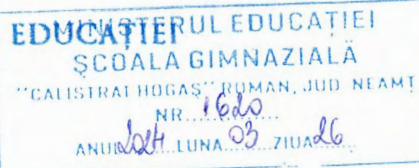 MINISTERUL EDUCAȚIEI
EDUCAȚIEI
ȘCOALA GIMNAZIALĂ
"CALISTRAT HOGAȘ" ROMAN, JUD NEAMȚ
NR. 1620
ANUL 2024 LUNA 03 ZIUA 26